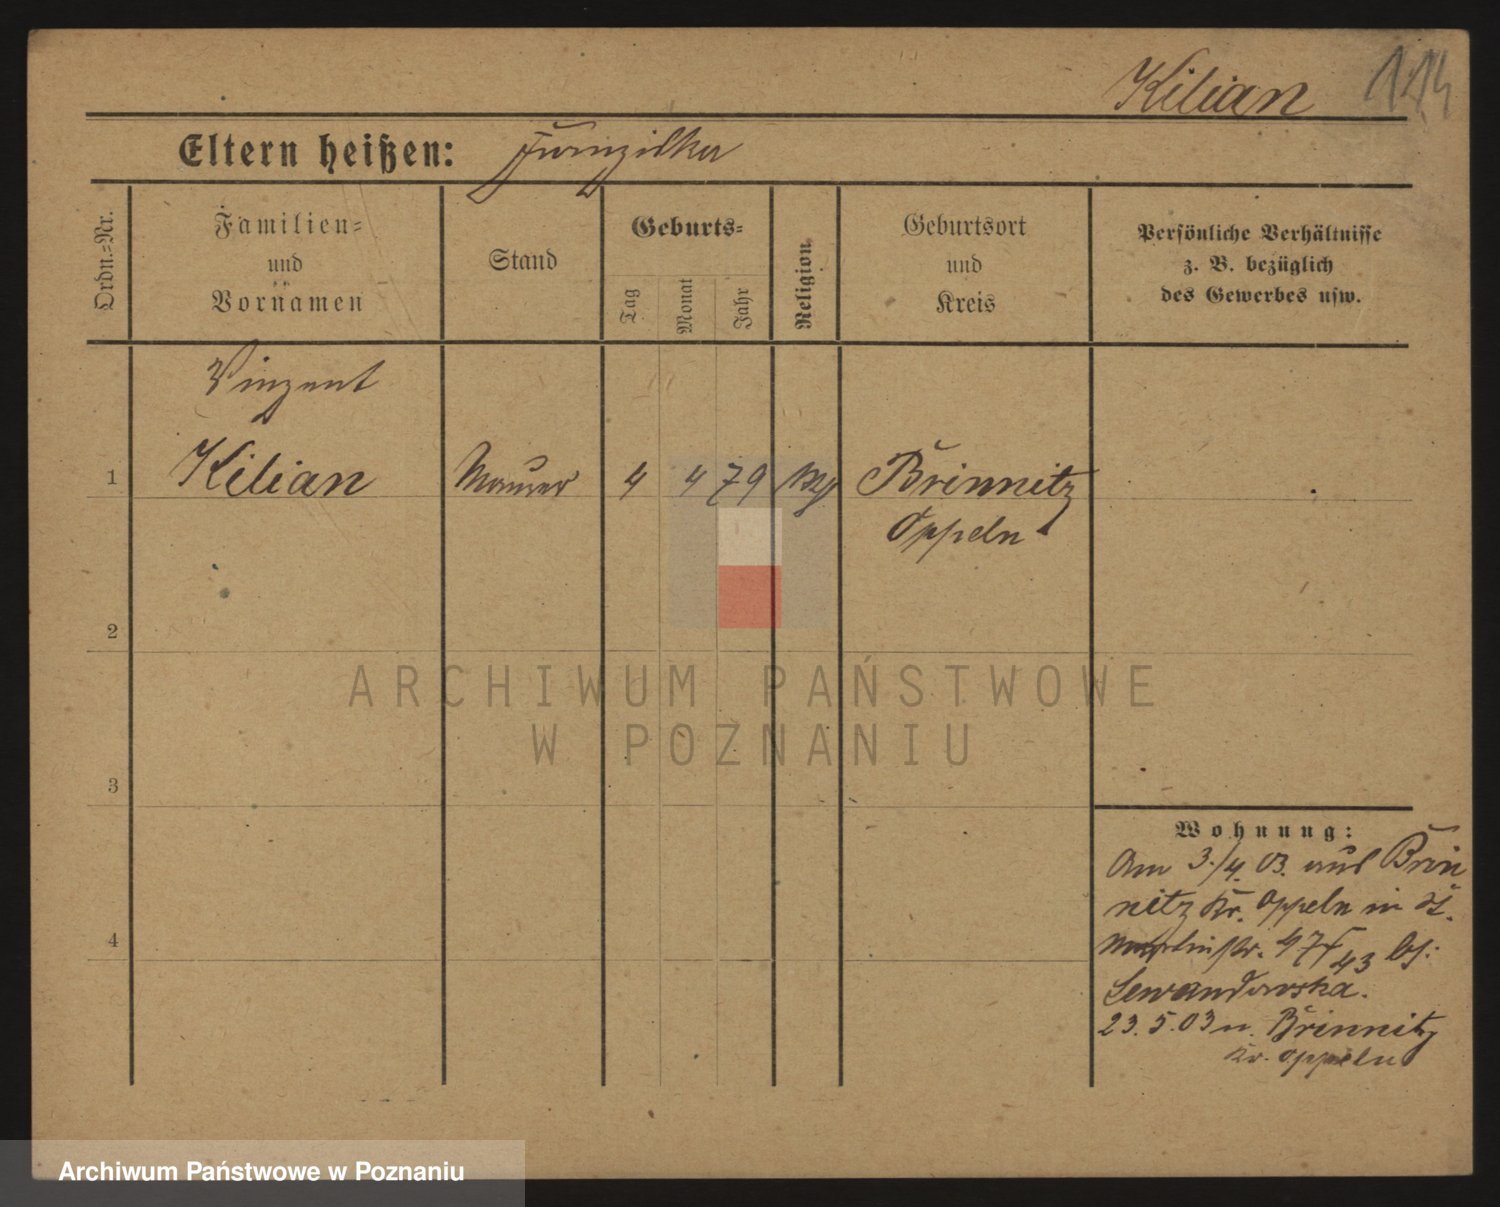 Kilian
Eltern heißen:
Ordn.=Nr.
Familien=
und
Vornamen
Stand
Geburts=
Tag
Monat
Jahr
Religion
Geburtsort
und
Kreis
Persönliche Verhältnisse
z. B. bezüglich
des Gewerbes usw.
Vinzent
1 Kilian Maurer 4 4 79 Brinnitz
Oppeln
2
3
4
Wohnung:
Am 3./4. 03. aus Brin
nitz Kr. Oppeln in St.
Martinstr. 43 bei
Lewandowska.
23. 5. 03 n. Brinnitz
Kr. Oppeln
ARCHIWUM PAŃSTWOWE
W POZNANIU
Archiwum Państwowe w Poznaniu